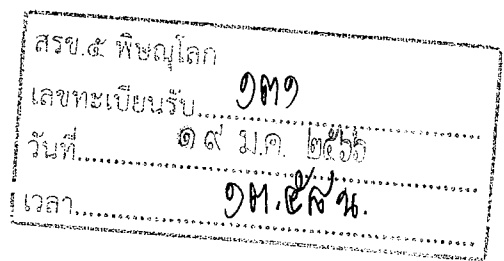 สรข.๕ พิษณุโลก
เลขทะเบียนรับ ๑๓๑
วันที่ ๑๙ ม.ค. ๒๕๖๖
เวลา